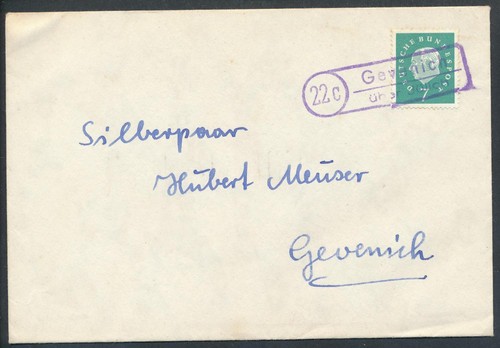 DEUTSCHE BUNDESPOST
7
22c
Gevenich
Silberpaar
Hubert Meuser
Gevenich